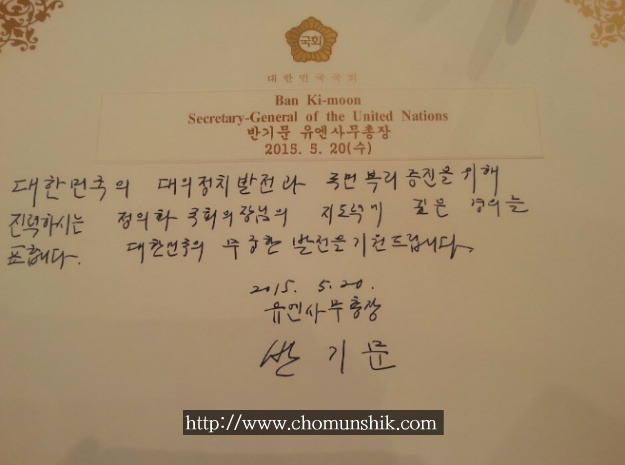 국회
대한민국국회
Ban Ki-moon
Secretary-General of the United Nations
반기문 유엔사무총장
2015. 5. 20(수)
대한민국의 대의정치발전과 국민복리 증진을 위해
진력하시는 정의화 국회의장님의 지도력에 깊은 경의를
표합니다. 대한민국의 무궁한 발전을 기원드립니다.
2015. 5. 20.
유엔사무총장
반기문
http://www.chomunshik.com